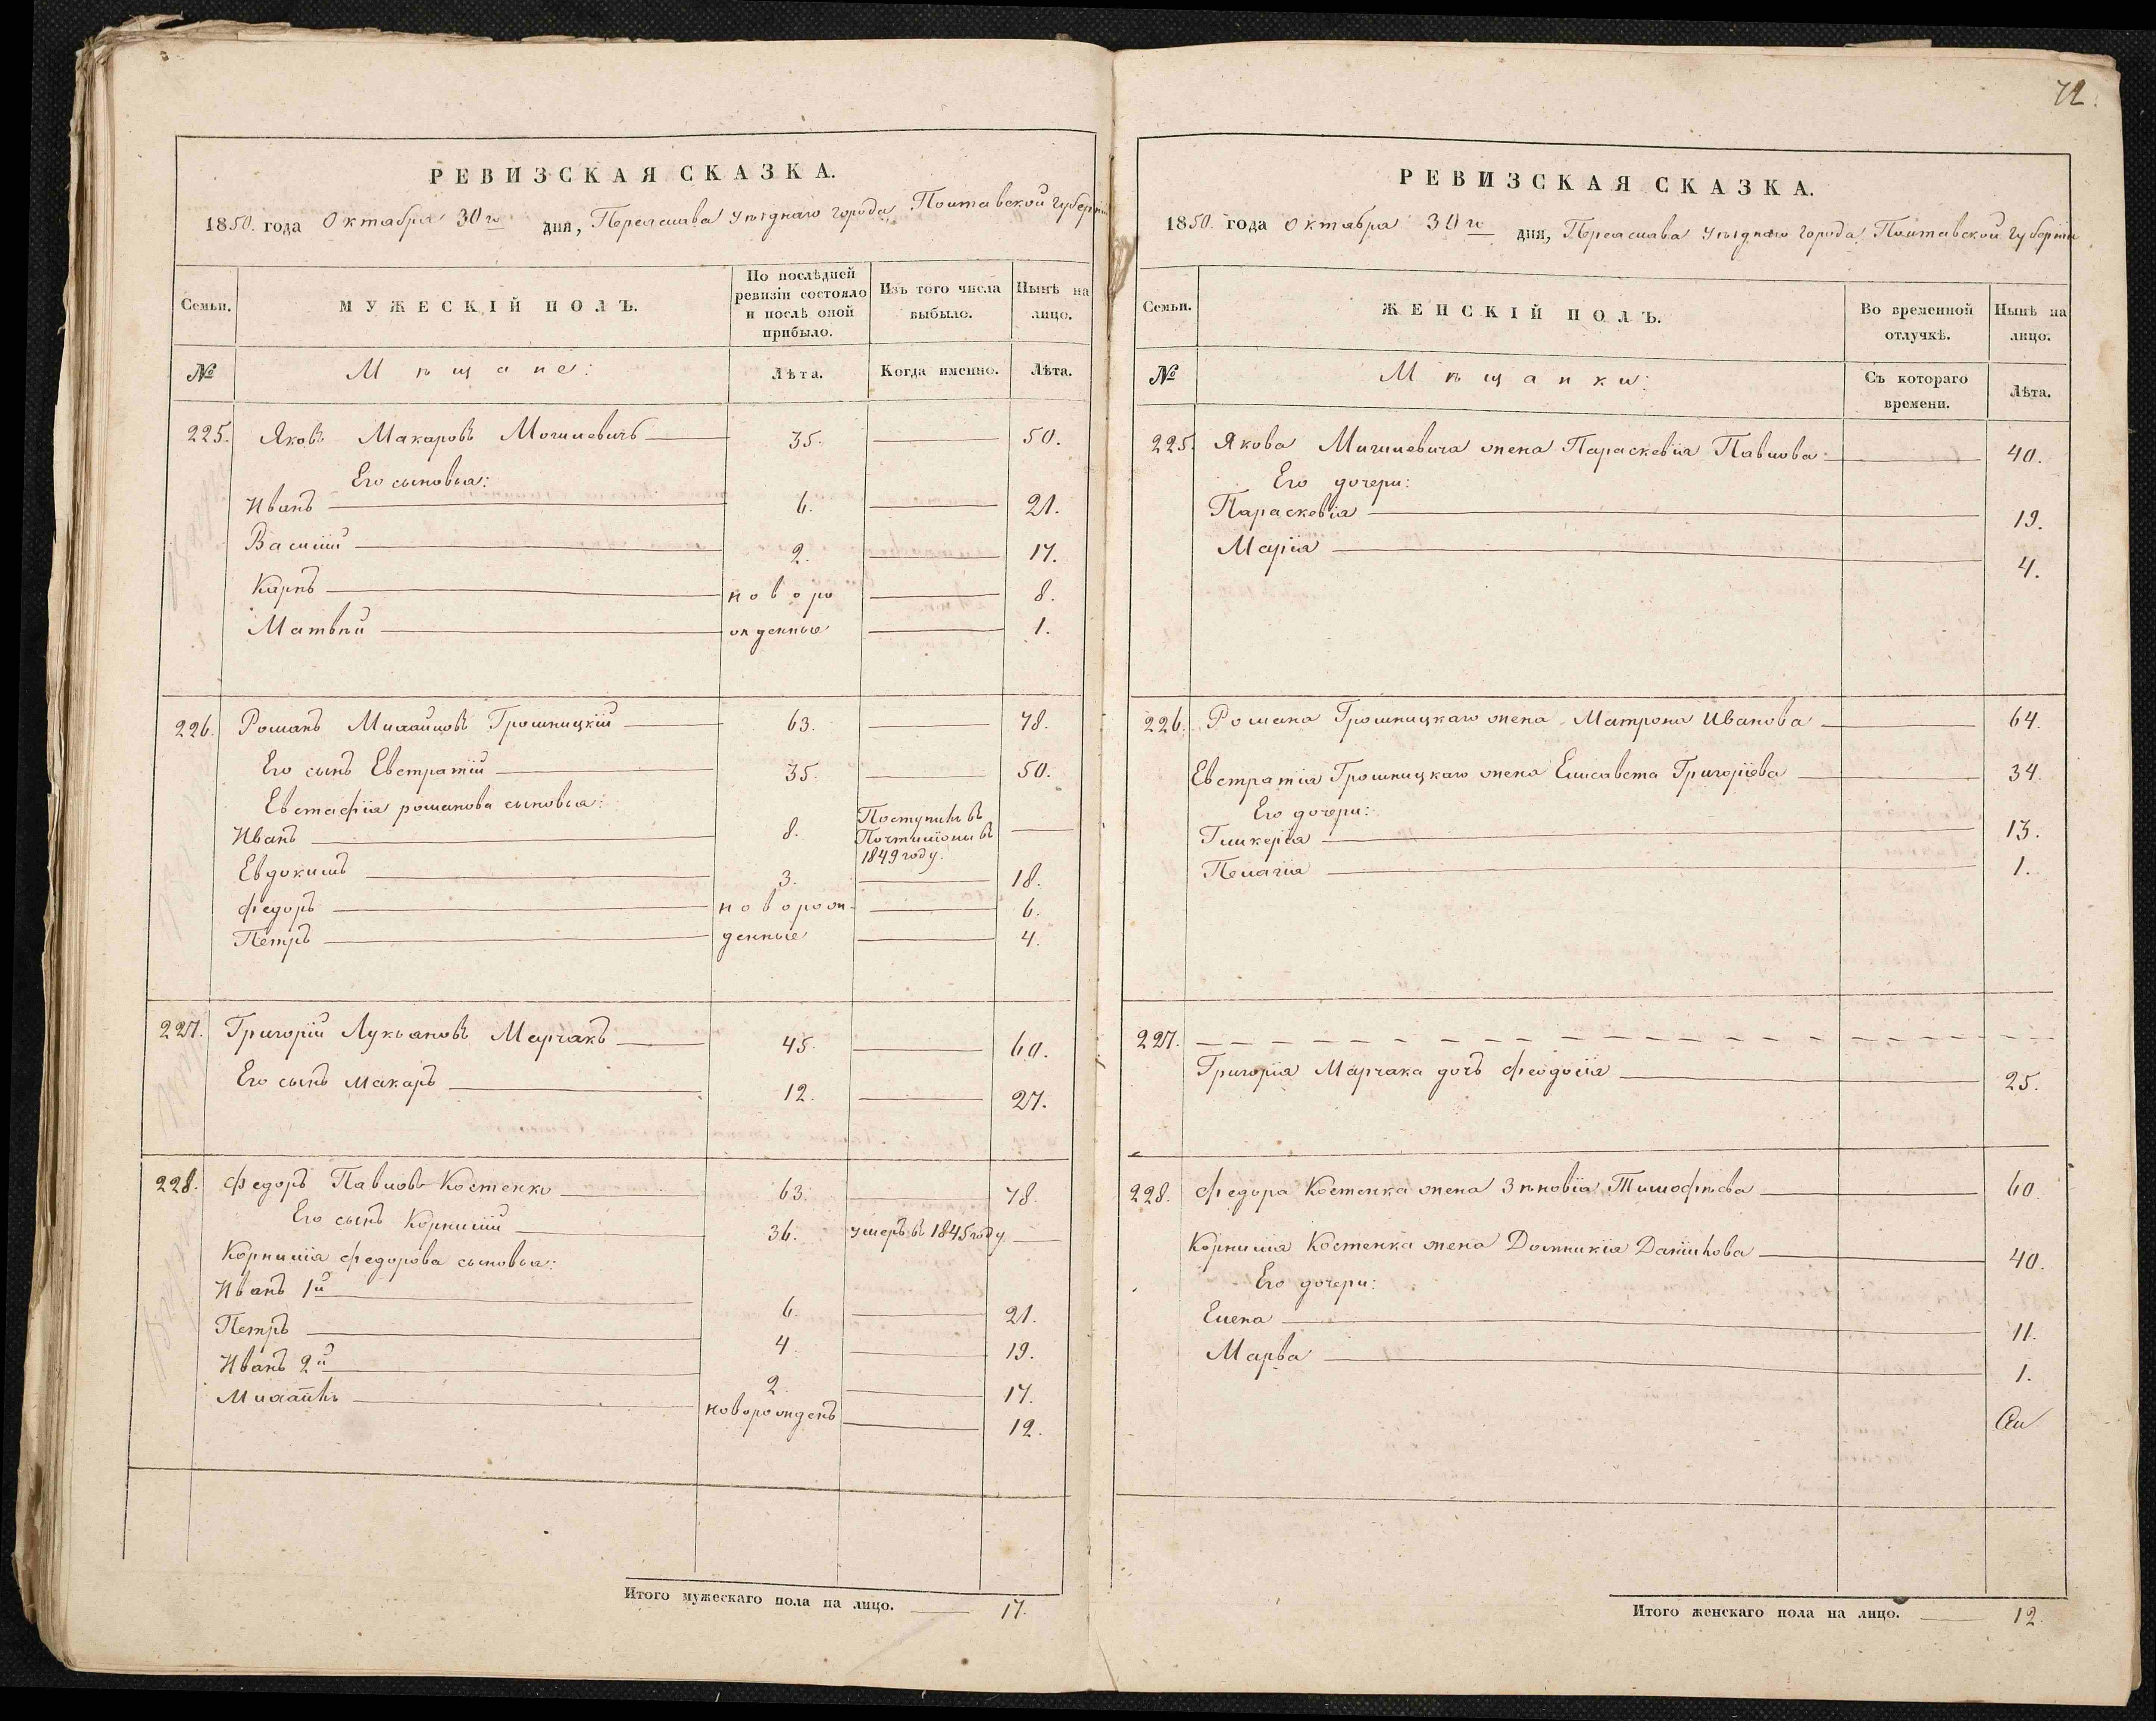 72.
РЕВИЗСКАЯ СКАЗКА.
1850. года Октября 30го дня, Переяслава уѣзднаго города, Полтавской Губерніи
Семьи. МУЖЕСКІЙ ПОЛЪ. По послѣдней ревизіи состояло и послѣ оной прибыло. Изъ того числа выбыло. Нынѣ на лицо.
№ Мѣщане: Лѣта. Когда именно. Лѣта.
225. Яковъ Макаровъ Могилевичъ 35. 50.
Его сыновья:
Иванъ 6. 21.
Василій 2. 17.
Карпъ новоро 8.
Матвѣй жденные 1.
226. Романъ Михайловъ Грошницкій 63. 78.
Его сынъ Евстратій 35. 50.
Евстафія романова сыновья:
Иванъ 8. Поступилъ въ Почтиліоны въ 1849 году.
Евдокимъ 3. 18.
Федоръ новорож- 6.
Петръ денные 4.
227. Григорій Лукьяновъ Марчакъ 45. 60.
Его сынъ Макаръ 12. 27.
228. Федоръ Павловъ Костенко 63. 78.
Его сынъ Корнилій 36. умеръ въ 1845 году.
Корнилія Федорова сыновья:
Иванъ 1й 6. 21.
Петръ 4. 19.
Иванъ 2й 2. 17.
Михаилъ новорожденъ 12.
Итого мужескаго пола на лицо. 17.
РЕВИЗСКАЯ СКАЗКА.
1850. года Октября 30го дня, Переяслава уѣзднаго города, Полтавской Губерніи
Семьи. ЖЕНСКІЙ ПОЛЪ. Во временной отлучкѣ. Нынѣ на лицо.
№ Мѣщанки: Съ котораго времени. Лѣта.
225. Якова Могилевича жена Параскевія Павлова 40.
Его дочери:
Параскевія 19.
Марія 4.
226. Романа Грошницкаго жена Матрона Иванова 64.
Евстратія Грошницкаго жена Елисавета Григоріева 34.
Его дочери:
Гликерія 13.
Пелагія 1.
227.
Григорія Марчака дочь Феодосія 25.
228. Федора Костенка жена Зѣновія Тимофѣева 60.
Корнилія Костенка жена Домникія Даніилова 40.
Его дочери:
Елена 11.
Марва 1.
Итого женскаго пола на лицо. 12.